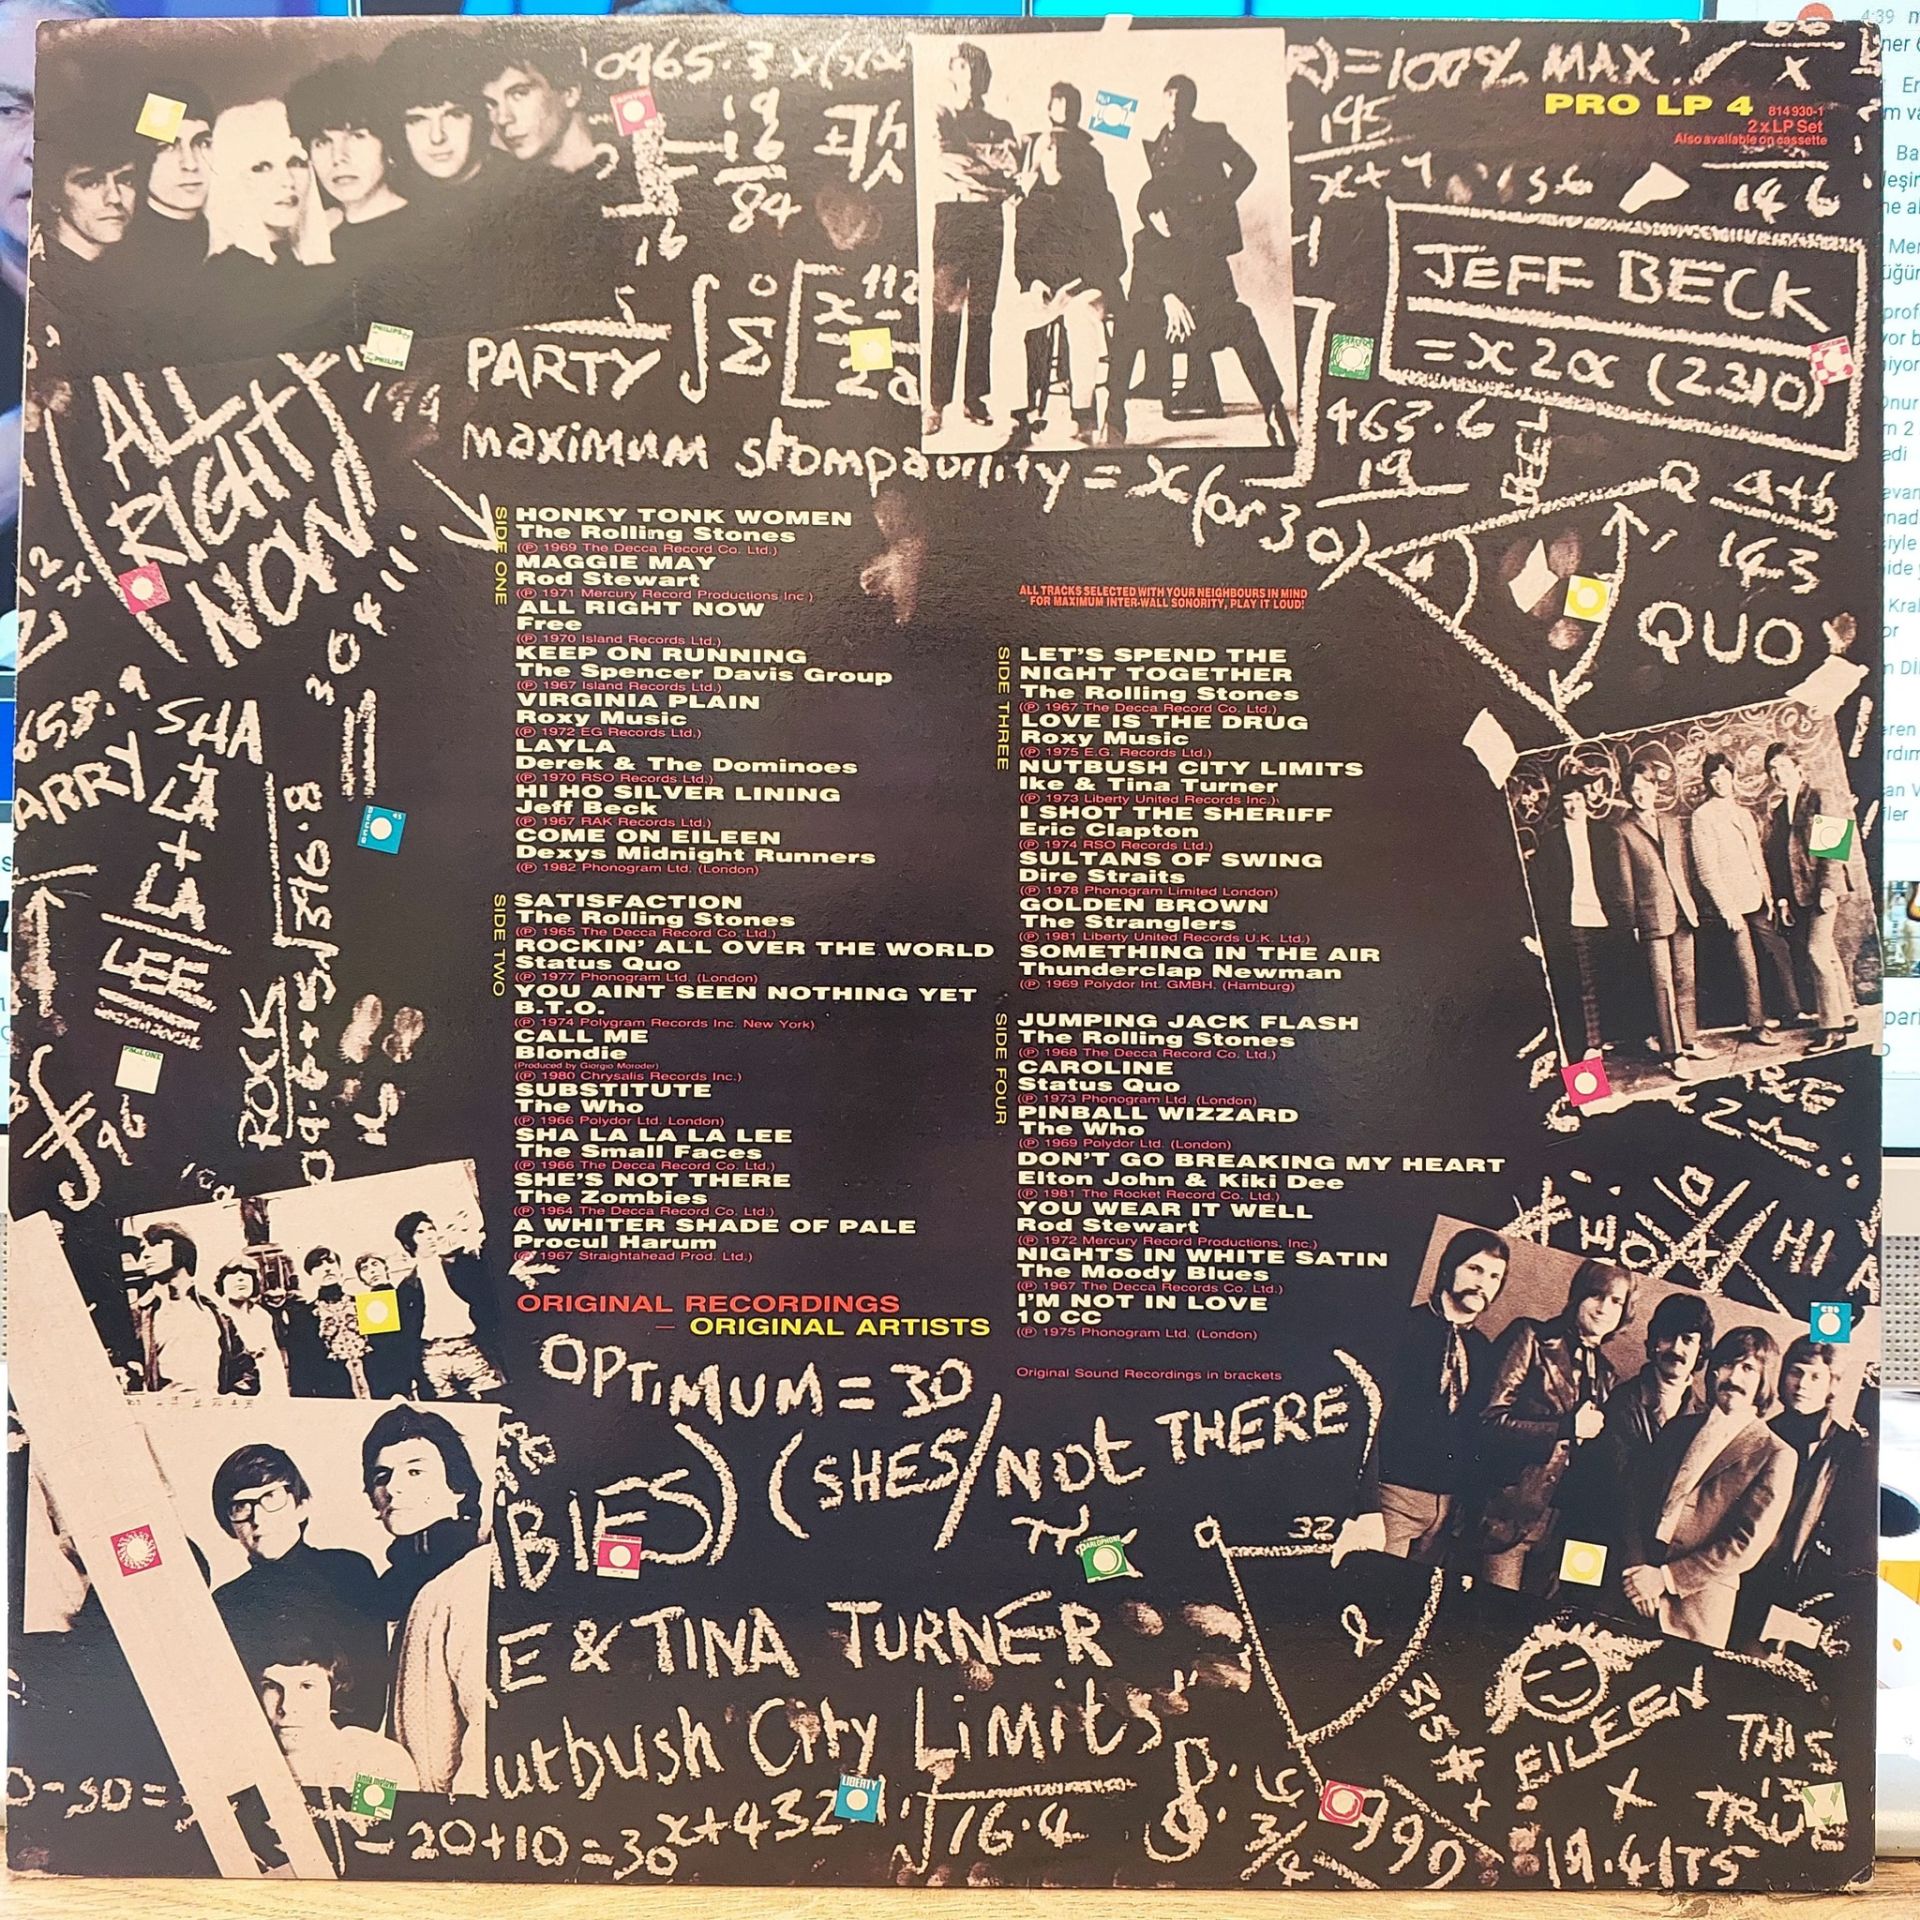 10965.3 x
19
18
84
16
R)=100% MAX.
PRO LP 4
814 930-1
2 x LP Set
Also available on cassette
195
x+4
15.6
146
JEFF BECK
= x 2α (2310)
PARTY
maximum stompability = x (or 30)
463.6
19
a+b
143
QUO
ALL
RIGHT
NOW
194
304.11.
SIDE ONE
HONKY TONK WOMEN
The Rolling Stones
(℗ 1969 The Decca Record Co. Ltd.)
MAGGIE MAY
Rod Stewart
(℗ 1971 Mercury Record Productions Inc.)
ALL RIGHT NOW
Free
(℗ 1970 Island Records Ltd.)
KEEP ON RUNNING
The Spencer Davis Group
(℗ 1967 Island Records Ltd.)
VIRGINIA PLAIN
Roxy Music
(℗ 1972 EG Records Ltd.)
LAYLA
Derek & The Dominoes
(℗ 1970 RSO Records Ltd.)
HI HO SILVER LINING
Jeff Beck
(℗ 1967 RAK Records Ltd.)
COME ON EILEEN
Dexys Midnight Runners
(℗ 1982 Phonogram Ltd. (London)
SIDE TWO
SATISFACTION
The Rolling Stones
(℗ 1965 The Decca Record Co. Ltd.)
ROCKIN' ALL OVER THE WORLD
Status Quo
(℗ 1977 Phonogram Ltd. (London)
YOU AINT SEEN NOTHING YET
B.T.O.
(℗ 1974 Polygram Records Inc. New York)
CALL ME
Blondie
(Produced by Giorgio Moroder)
(℗ 1980 Chrysalis Records Inc.)
SUBSTITUTE
The Who
(℗ 1966 Polydor Ltd. London)
SHA LA LA LA LEE
The Small Faces
(℗ 1966 The Decca Record Co. Ltd.)
SHE'S NOT THERE
The Zombies
(℗ 1964 The Decca Record Co. Ltd.)
A WHITER SHADE OF PALE
Procul Harum
(℗ 1967 Straightahead Prod. Ltd.)
ORIGINAL RECORDINGS
— ORIGINAL ARTISTS
ALL TRACKS SELECTED WITH YOUR NEIGHBOURS IN MIND
FOR MAXIMUM INTER-WALL SONORITY, PLAY IT LOUD!
SIDE THREE
LET'S SPEND THE
NIGHT TOGETHER
The Rolling Stones
(℗ 1967 The Decca Record Co. Ltd.)
LOVE IS THE DRUG
Roxy Music
(℗ 1975 E.G. Records Ltd.)
NUTBUSH CITY LIMITS
Ike & Tina Turner
(℗ 1973 Liberty United Records Inc.)
I SHOT THE SHERIFF
Eric Clapton
(℗ 1974 RSO Records Ltd.)
SULTANS OF SWING
Dire Straits
(℗ 1978 Phonogram Limited London)
GOLDEN BROWN
The Stranglers
(℗ 1981 Liberty United Records U.K. Ltd.)
SOMETHING IN THE AIR
Thunderclap Newman
(℗ 1969 Polydor Int. GMBH. (Hamburg)
SIDE FOUR
JUMPING JACK FLASH
The Rolling Stones
(℗ 1968 The Decca Record Co. Ltd.)
CAROLINE
Status Quo
(℗ 1973 Phonogram Ltd. (London)
PINBALL WIZZARD
The Who
(℗ 1969 Polydor Ltd. (London)
DON'T GO BREAKING MY HEART
Elton John & Kiki Dee
(℗ 1981 The Rocket Record Co. Ltd.)
YOU WEAR IT WELL
Rod Stewart
(℗ 1972 Mercury Record Productions, Inc.)
NIGHTS IN WHITE SATIN
The Moody Blues
(℗ 1967 The Decca Records Co. Ltd.)
I'M NOT IN LOVE
10 CC
(℗ 1975 Phonogram Ltd. (London)
Original Sound Recordings in brackets
658.9
ARRY
SHA
LA + LA + LA
LEE
ROCK
£96
OPTIMUM = 30
BIES) (SHES/NOT THERE)
π
32
E & TINA TURNER
utbush City Limits"
315#
EILEEN
THIS
IS
TRUE
0-30=
-20+10=30 x+432
LIBERTY
16.4
3/4
990
19.41TS